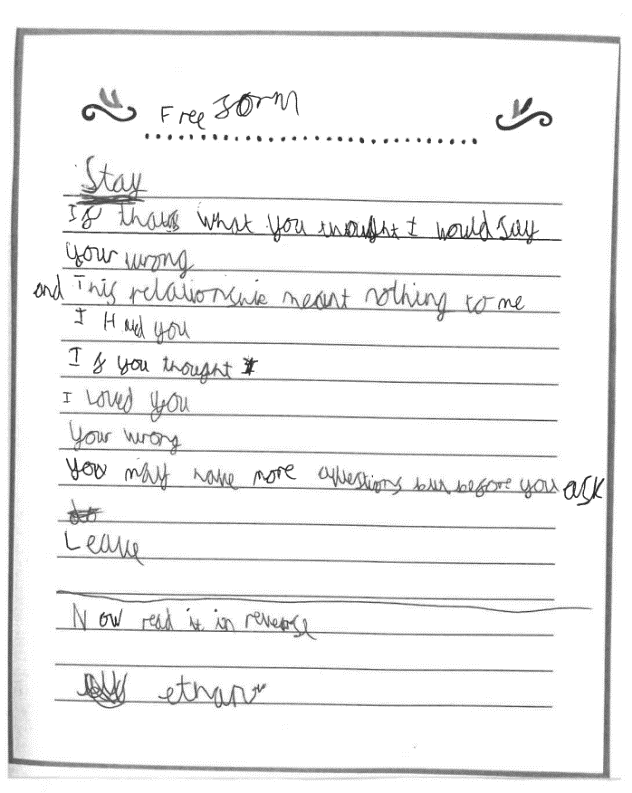 Free form
Stay
If thats what you thought I would say
Your wrong
and This relationship meant nothing to me
I Had you
If you thought
I Loved you
Your wrong
You may have more questions but before you ask
Leave
Now read it in reverse
ethan